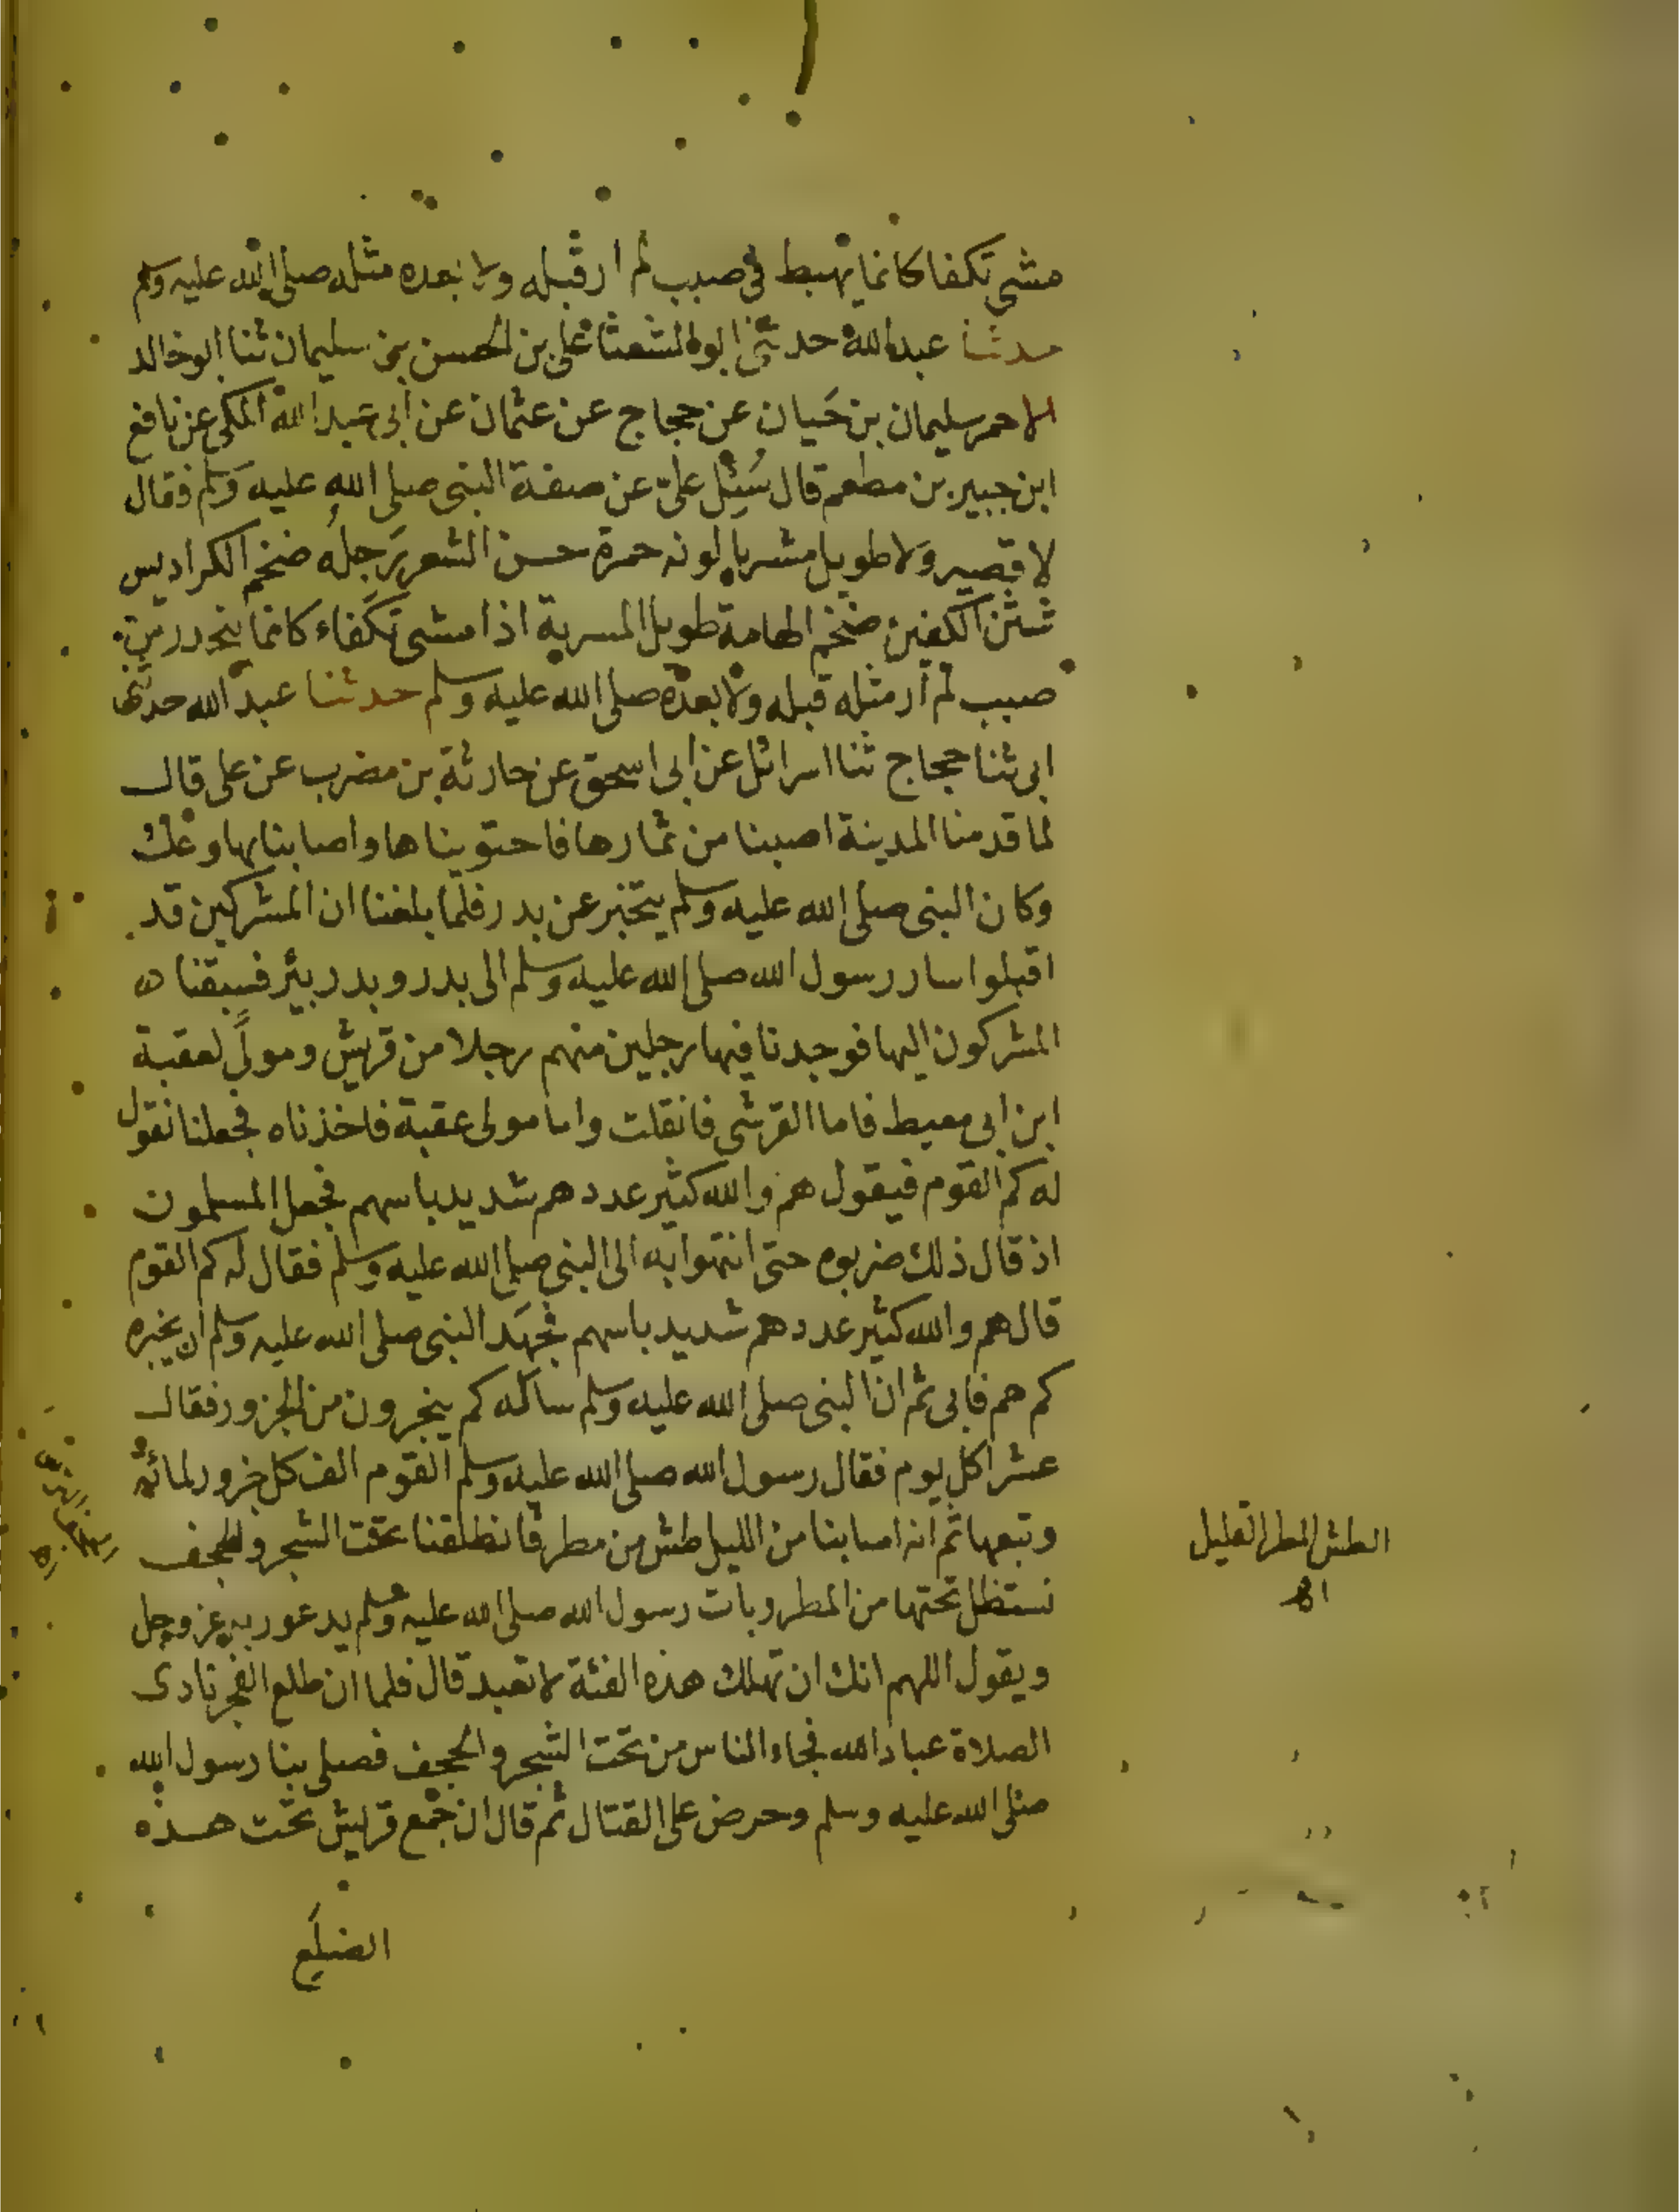 مشى تكفا كانما يهبط في صبب لم ار قبله ولا بعده مثله صلى الله عليه وسلم
حدثنا عبد الله حدثني ابو الشعثا علي بن الحسن بن سليمان ثنا ابو خالد
الاحمر سليمان بن حَيان عن حجاج عن عثمان عن ابي عبد الله المكي عن نافع
ابن جبير بن مطعم قال سُئِل عليّ عن صفة النبي صلى الله عليه وسلم فقال
لا قصير ولا طويل مشربا لونه حمرة حسن الشعر رَجِلُه ضخم الكراديس
شثن الكفين ضخم الهامة طويل المسربة اذا مشى تَكَفاء كانما ينحدر من
صبب لم أر مثله قبله ولا بعده صلى الله عليه وسلم حدثنا عبد الله حدثني
ابي ثنا حجاج ثنا اسرائل عن ابي اسحق عن حارثة بن مضرب عن علي قال
لما قدمنا المدينة اصبنا من ثمارها فاجتويناها واصابنا بها وعك
وكان النبي صلى الله عليه وسلم يتخبر عن بدر فلما بلغنا ان المشركين قد
اقبلوا سار رسول الله صلى الله عليه وسلم الى بدر وبدر بئر فسبقنا
المشركون اليها فوجدنا فيها رجلين منهم رجلا من قريش ومولًى لعقبة
ابن ابي معيط فاما القرشي فانفلت واما مولى عقبة فاخذناه فجعلنا نقول
له كم القوم فيقول هم والله كثير عددهم شديد باسهم فجعل المسلمون
اذ قال ذلك ضربوه حتى انتهوا به الى النبي صلى الله عليه وسلم فقال له كم القوم
قال هم والله كثير عددهم شديد باسهم فجَهَد النبي صلى الله عليه وسلم ان يخبره
كم هم فابى ثم ان النبي صلى الله عليه وسلم ساله كم ينحرون من الجزور فقال
عشرا كل يوم فقال رسول الله صلى الله عليه وسلم القوم الف كل جزور لمائة
وتبعها ثم انه اصابنا من الليل طش من مطر فانطلقنا تحت الشجر والحجف
نستظل تحتها من المطر وبات رسول الله صلى الله عليه وسلم يدعو ربه عز وجل
ويقول اللهم انك ان تهلك هذه الفئة لا تعبد قال فلما ان طلع الفجر نادى
الصلاة عباد الله فجاء الناس من تحت الشجر والحجف فصلى بنا رسول الله
صلى الله عليه وسلم وحرض على القتال ثم قال ان جمع قريش تحت هذه
الضلع
الطش المطر القليل
اه